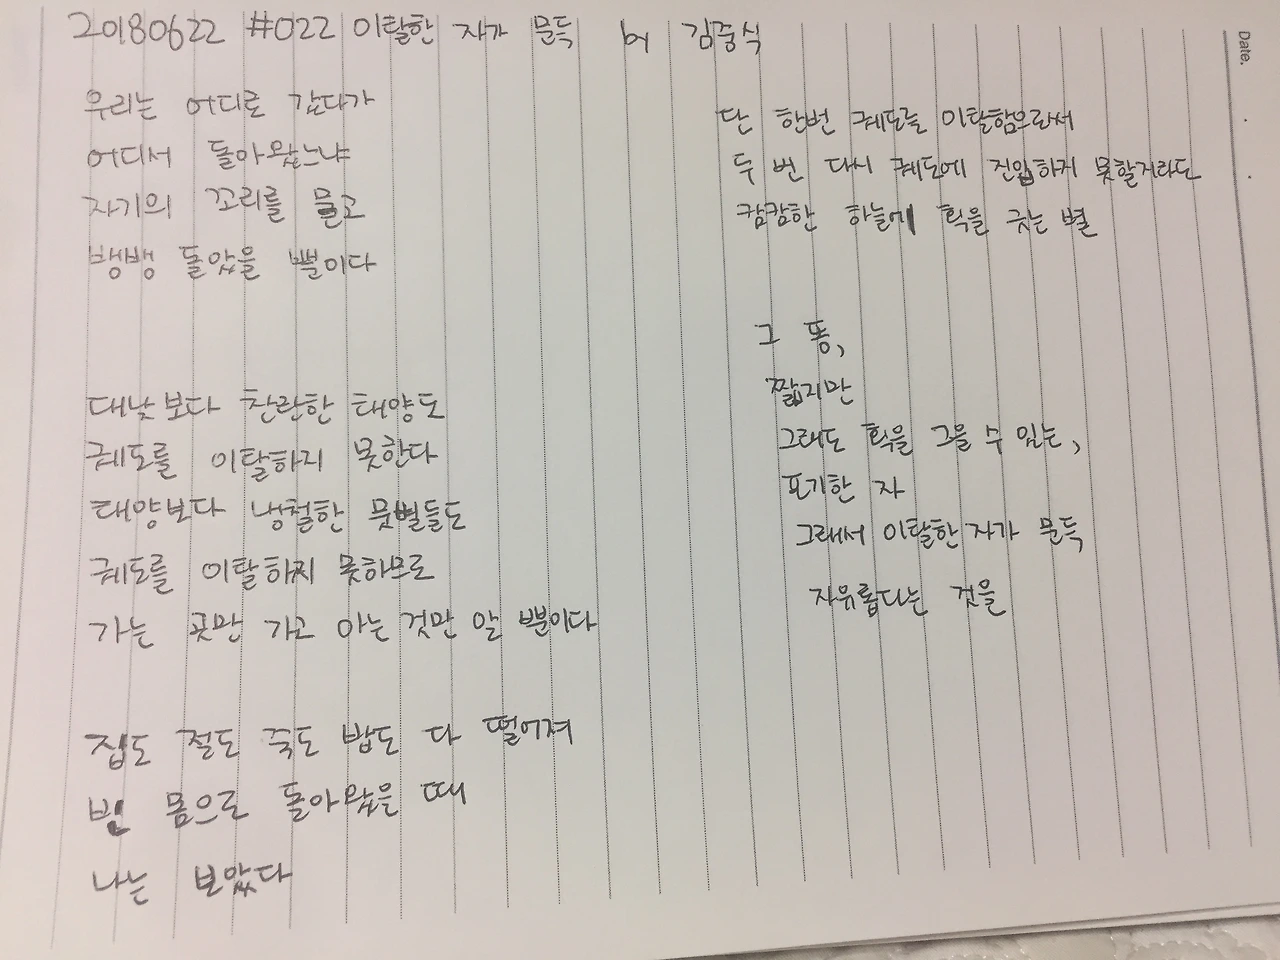 20180622 #022 이탈한 자가 문득 by 김중식
Date.
우리는 어디로 갔다가
어디서 돌아왔느냐
자기의 꼬리를 물고
뱅뱅 돌았을 뿐이다
대낮보다 찬란한 태양도
궤도를 이탈하지 못한다
태양보다 냉철한 뭇별들도
궤도를 이탈하지 못하므로
가는 곳만 가고 아는 것만 알 뿐이다
집도 절도 죽도 밥도 다 떨어져
빈 몸으로 돌아왔을 때
나는 보았다
단 한번 궤도를 이탈함으로써
두 번 다시 궤도에 진입하지 못할지라도
캄캄한 하늘에 획을 긋는 별
그 똥,
짧지만
그래도 획을 그을 수 있는,
포기한 자
그래서 이탈한 자가 문득
자유롭다는 것을